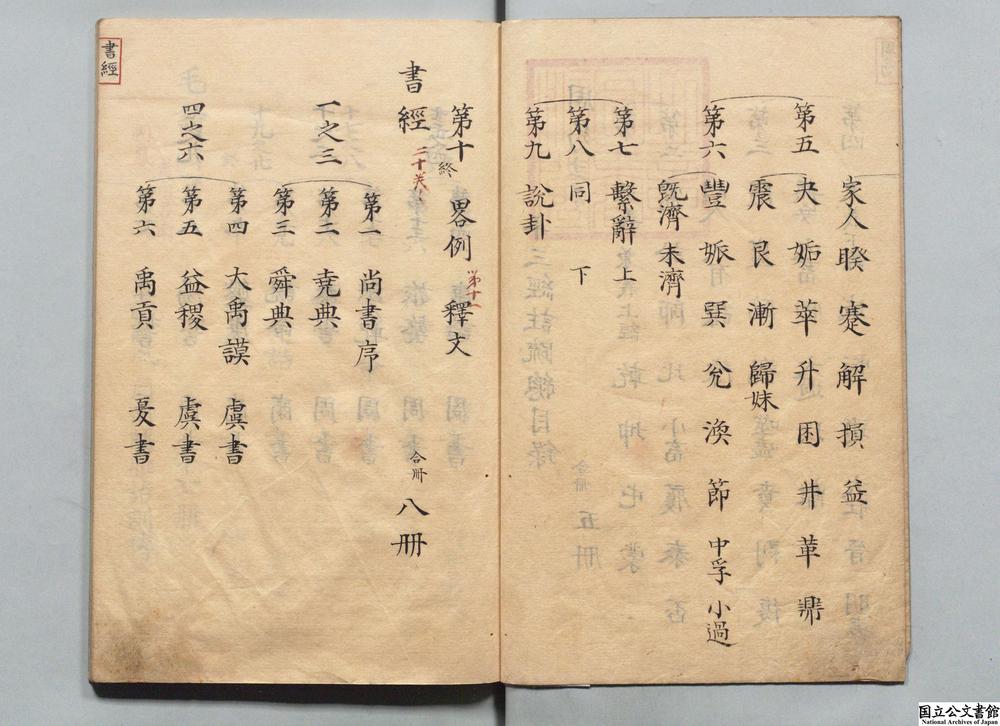 家人 睽 蹇 解 損 益
第五 夬 姤 萃 升 困 井 革 鼎
震 艮 漸 歸妹
第六 豐 旅 巽 兌 渙 節 中孚 小過
既濟 未濟
第七 繫辭 上
第八 同 下
第九 說卦
第十 終 畧例 第十一 釋文
書經 二十卷 合冊 八冊
第一 尚書序
一之三 第二 堯典
第三 舜典
第四 大禹謨 虞書
四之六 第五 益稷 虞書
第六 禹貢 夏書
書經
国立公文書館
National Archives of Japan